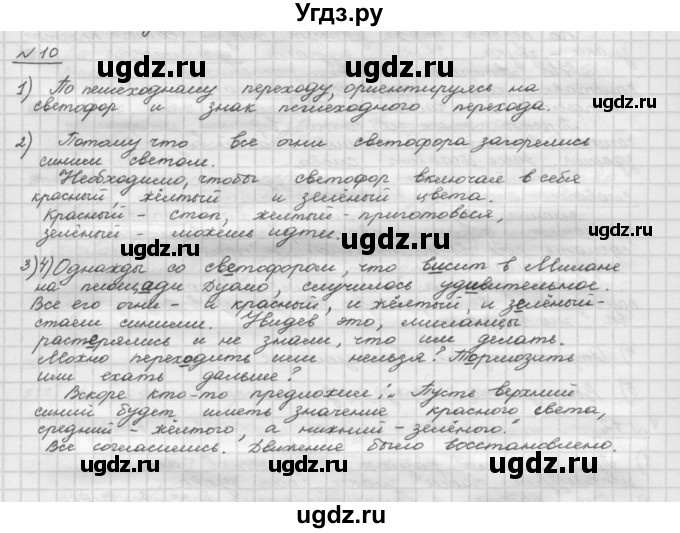 Угдз.ру
№ 10
ugdz.ru ugdz.ru
1) По пешеходному переходу, ориентируясь на
светофор и знак пешеходного перехода.
ugdz.ru ugdz.ru
2) Потому что все огни светофора загорелись
синим светом.
Необходимо, чтобы светофор включал в себя
красный, жёлтый и зелёный цвета.
ugdz.ru ugdz.ru
Красный - стоп, желтый - приготовься,
зелёный - можешь идти.
ugdz.ru
3) 4) Однажды со светофором, что висит в Милане
на площади Дуомо, случилось удивительное.
Все его огни - и красный, и жёлтый, и зелёный -
стали синими. Увидев это, миланцы
растерялись и не знали, что им делать.
Можно переходить или нельзя? Тормозить
ugdz.ru ugdz.ru
или ехать дальше?
Вскоре кто-то предложил: „Пусть верхний
синий будет иметь значение красного света,
ugdz.ru ugdz.ru
средний - жёлтого, а нижний - зелёного."
Все согласились. Движение было восстановлено.
ugdz.ru ugdz.ru
ugdz.ru ugdz.ru